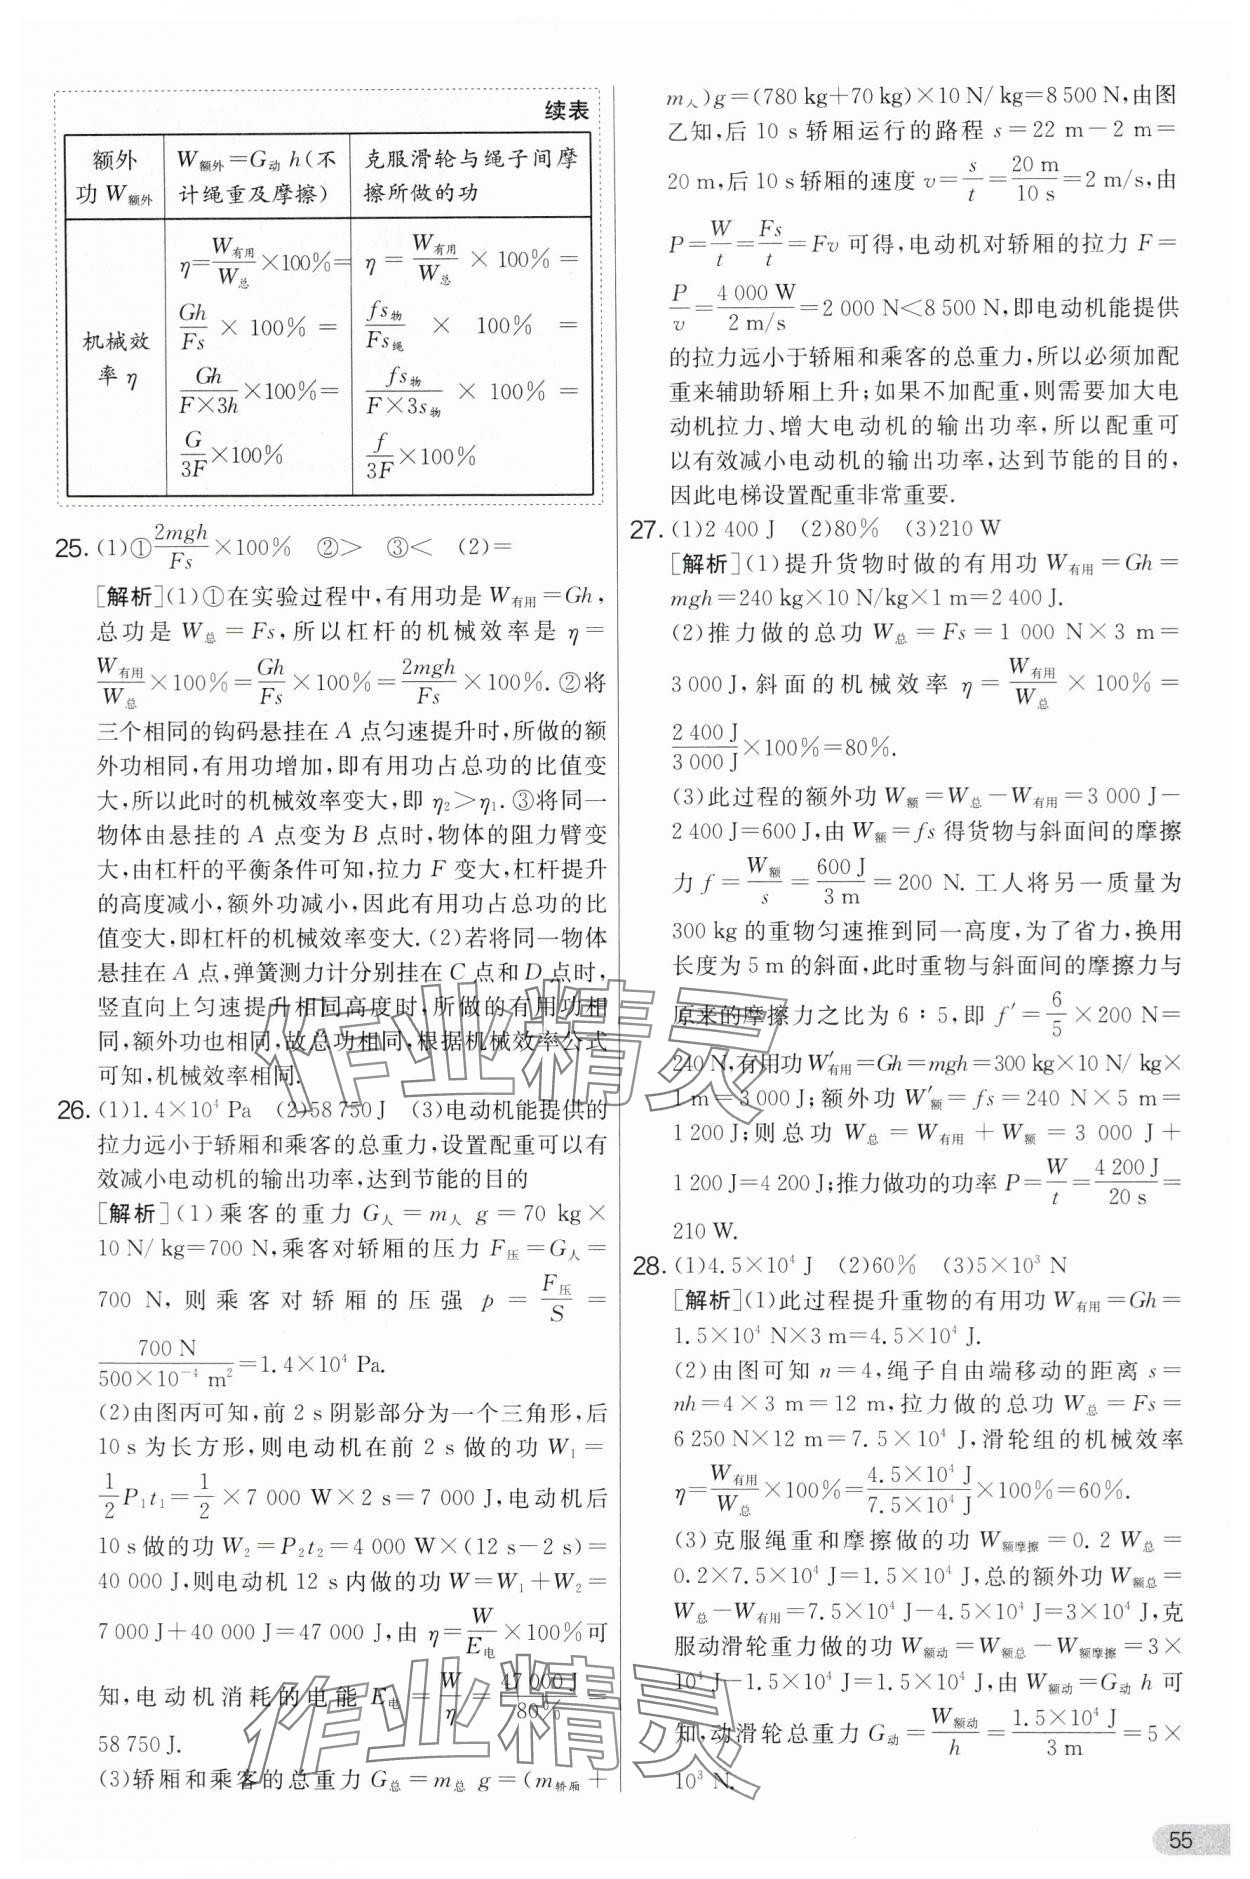 续表
额外功 W额外
W额外=G动 h(不计绳重及摩擦)
克服滑轮与绳子间摩擦所做的功
机械效率 η
η=W有用/W总×100%=
Gh/Fs × 100% =
Gh/(F×3h)×100%=
G/3F×100%
η = W有用/W总 × 100% =
fs物/Fs绳 × 100% =
fs物/(F×3s物) × 100% =
f/3F×100%
25. (1)①2mgh/Fs×100% ②> ③< (2)=
[解析](1)①在实验过程中,有用功是 W有用=Gh,
总功是 W总=Fs,所以杠杆的机械效率是 η=
W有用/W总×100%=Gh/Fs×100%=2mgh/Fs×100%. ②将
三个相同的钩码悬挂在 A 点匀速提升时,所做的额
外功相同,有用功增加,即有用功占总功的比值变
大,所以此时的机械效率变大,即 η₂>η₁. ③将同一
物体由悬挂的 A 点变为 B 点时,物体的阻力臂变
大,由杠杆的平衡条件可知,拉力 F 变大,杠杆提升
的高度减小,额外功减小,因此有用功占总功的比
值变大,即杠杆的机械效率变大. (2)若将同一物体
悬挂在 A 点,弹簧测力计分别挂在 C 点和 D 点时,
竖直向上匀速提升相同高度时,所做的有用功相
同,额外功也相同,故总功相同,根据机械效率公式
可知,机械效率相同.
26. (1)1.4×10⁴ Pa (2)58 750 J (3)电动机能提供的
拉力远小于轿厢和乘客的总重力,设置配重可以有
效减小电动机的输出功率,达到节能的目的
[解析](1)乘客的重力 G人=m人 g=70 kg×
10 N/ kg=700 N,乘客对轿厢的压力 F压=G人=
700 N, 则乘客对轿厢的压强 p = F压/S =
700 N/(500×10⁻⁴ m²)=1.4×10⁴ Pa.
(2)由图丙可知,前 2 s 阴影部分为一个三角形,后
10 s 为长方形,则电动机在前 2 s 做的功 W₁=
1/2P₁t₁=1/2×7 000 W×2 s=7 000 J,电动机后
10 s 做的功 W₂=P₂t₂=4 000 W×(12 s-2 s)=
40 000 J,则电动机 12 s 内做的功 W=W₁+W₂=
7 000 J+40 000 J=47 000 J,由 η=W/E电×100%可
知,电动机消耗的电能 E电=W/η=47 000 J/80%=
58 750 J.
(3)轿厢和乘客的总重力 G总=m总 g=(m轿厢+
m人)g=(780 kg+70 kg)×10 N/ kg=8 500 N,由图
乙知,后 10 s 轿厢运行的路程 s=22 m-2 m=
20 m,后 10 s 轿厢的速度 v=s/t=20 m/10 s=2 m/s,由
P=W/t=Fs/t=Fv 可得,电动机对轿厢的拉力 F=
P/v=4 000 W/2 m/s=2 000 N<8 500 N,即电动机能提供
的拉力远小于轿厢和乘客的总重力,所以必须加配
重来辅助轿厢上升;如果不加配重,则需要加大电
动机拉力、增大电动机的输出功率,所以配重可
以有效减小电动机的输出功率,达到节能的目的,
因此电梯设置配重非常重要.
27. (1)2 400 J (2)80% (3)210 W
[解析](1)提升货物时做的有用功 W有用=Gh=
mgh=240 kg×10 N/kg×1 m=2 400 J.
(2)推力做的总功 W总=Fs=1 000 N×3 m=
3 000 J,斜面的机械效率 η=W有用/W总×100%=
2 400 J/3 000 J×100%=80%.
(3)此过程的额外功 W额=W总-W有用=3 000 J-
2 400 J=600 J,由 W额=fs 得货物与斜面间的摩擦
力 f=W额/s=600 J/3 m=200 N. 工人将另一质量为
300 kg 的重物匀速推到同一高度,为了省力,换用
长度为 5 m 的斜面,此时重物与斜面间的摩擦力与
原来的摩擦力之比为 6∶5,即 f′=6/5×200 N=
240 N,有用功W′有用=Gh=mgh=300 kg×10 N/ kg×
1 m=3 000 J;额外功 W′额=fs=240 N×5 m=
1 200 J;则总功 W总=W有用+W额=3 000 J+
1 200 J=4 200 J;推力做功的功率 P=W/t=4 200 J/20 s=
210 W.
28. (1)4.5×10⁴ J (2)60% (3)5×10³ N
[解析](1)此过程提升重物的有用功 W有用=Gh=
1.5×10⁴ N×3 m=4.5×10⁴ J.
(2)由图可知 n=4,绳子自由端移动的距离 s=
nh=4×3 m=12 m,拉力做的总功 W总=Fs=
6 250 N×12 m=7.5×10⁴ J,滑轮组的机械效率
η=W有用/W总×100%=4.5×10⁴ J/7.5×10⁴ J×100%=60%.
(3)克服绳重和摩擦做的功 W额摩擦=0.2 W总=
0.2×7.5×10⁴ J=1.5×10⁴ J,总的额外功 W额总=
W总-W有用=7.5×10⁴ J-4.5×10⁴ J=3×10⁴ J,克
服动滑轮重力做的功 W额动=W额总-W额摩擦=3×
10⁴ J-1.5×10⁴ J=1.5×10⁴ J,由 W额动=G动 h 可
知,动滑轮总重力 G动=W额动/h=1.5×10⁴ J/3 m=5×
10³ N.
作业精灵
作业精灵
55